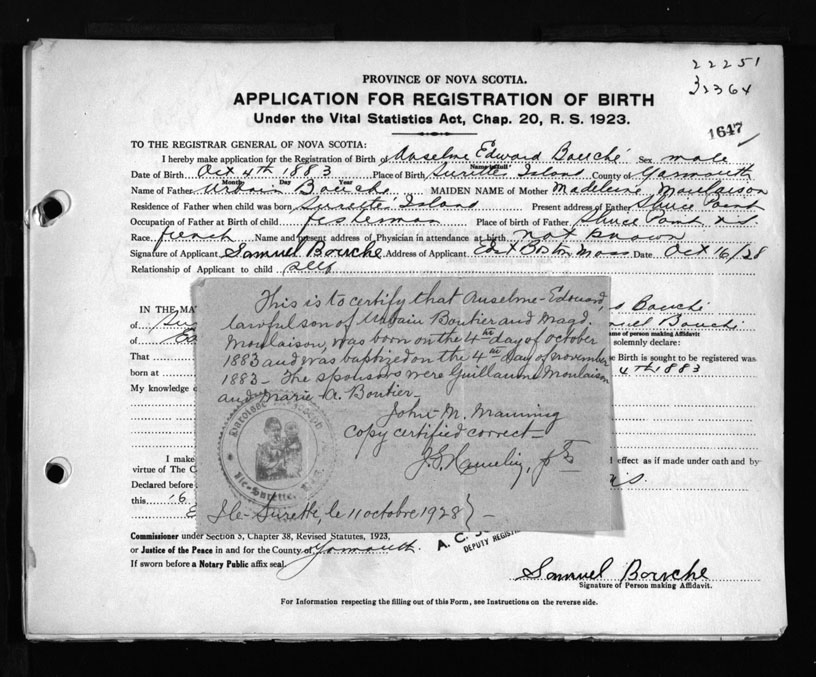 22251
32364
1647
PROVINCE OF NOVA SCOTIA.
APPLICATION FOR REGISTRATION OF BIRTH
Under the Vital Statistics Act, Chap. 20, R. S. 1923.
TO THE REGISTRAR GENERAL OF NOVA SCOTIA:
I hereby make application for the Registration of Birth of Anselme Edward Bouché Sex male
Date of Birth Oct 4th 1883 Place of Birth Surette Island County of Yarmouth
Month Day Year
Name of Father Urbain Bouche MAIDEN NAME of Mother Madeleine Moulaison
Residence of Father when child was born Surette Island Present address of Father
Occupation of Father at Birth of child fisherman Place of birth of Father
Race french Name and present address of Physician in attendance at birth not known
Signature of Applicant Samuel Bouche Address of Applicant East Boston Mass Date Oct 16/28
Relationship of Applicant to child self
This is to certify that Anselme-Edouard,
lawful son of Urbain Boutier and Magd.
Moulaison, was born on the 4th day of october
1883 and was baptized on the 4th day of november
1883 - The sponsors were Guillaume Moulaison
and Marie A. Boutier -
John M. Manning
Copy certified correct -
Ile-Surette, le 11 octobre 1928
IN THE MA
Bouché
of
Bouché
name of person making Affidavit
of
solemnly declare:
That
e Birth is sought to be registered was
born at
4th 1883
My knowledge o
I make
d effect as if made under oath and by
virtue of The C
Declared before
this 16
A. C.
DEPUTY REGIST
Commissioner under Section 5, Chapter 38, Revised Statutes, 1923,
or Justice of the Peace in and for the County of Yarmouth.
If sworn before a Notary Public affix seal.
Samuel Bouche
Signature of Person making Affidavit.
For Information respecting the filling out of this Form, see Instructions on the reverse side.